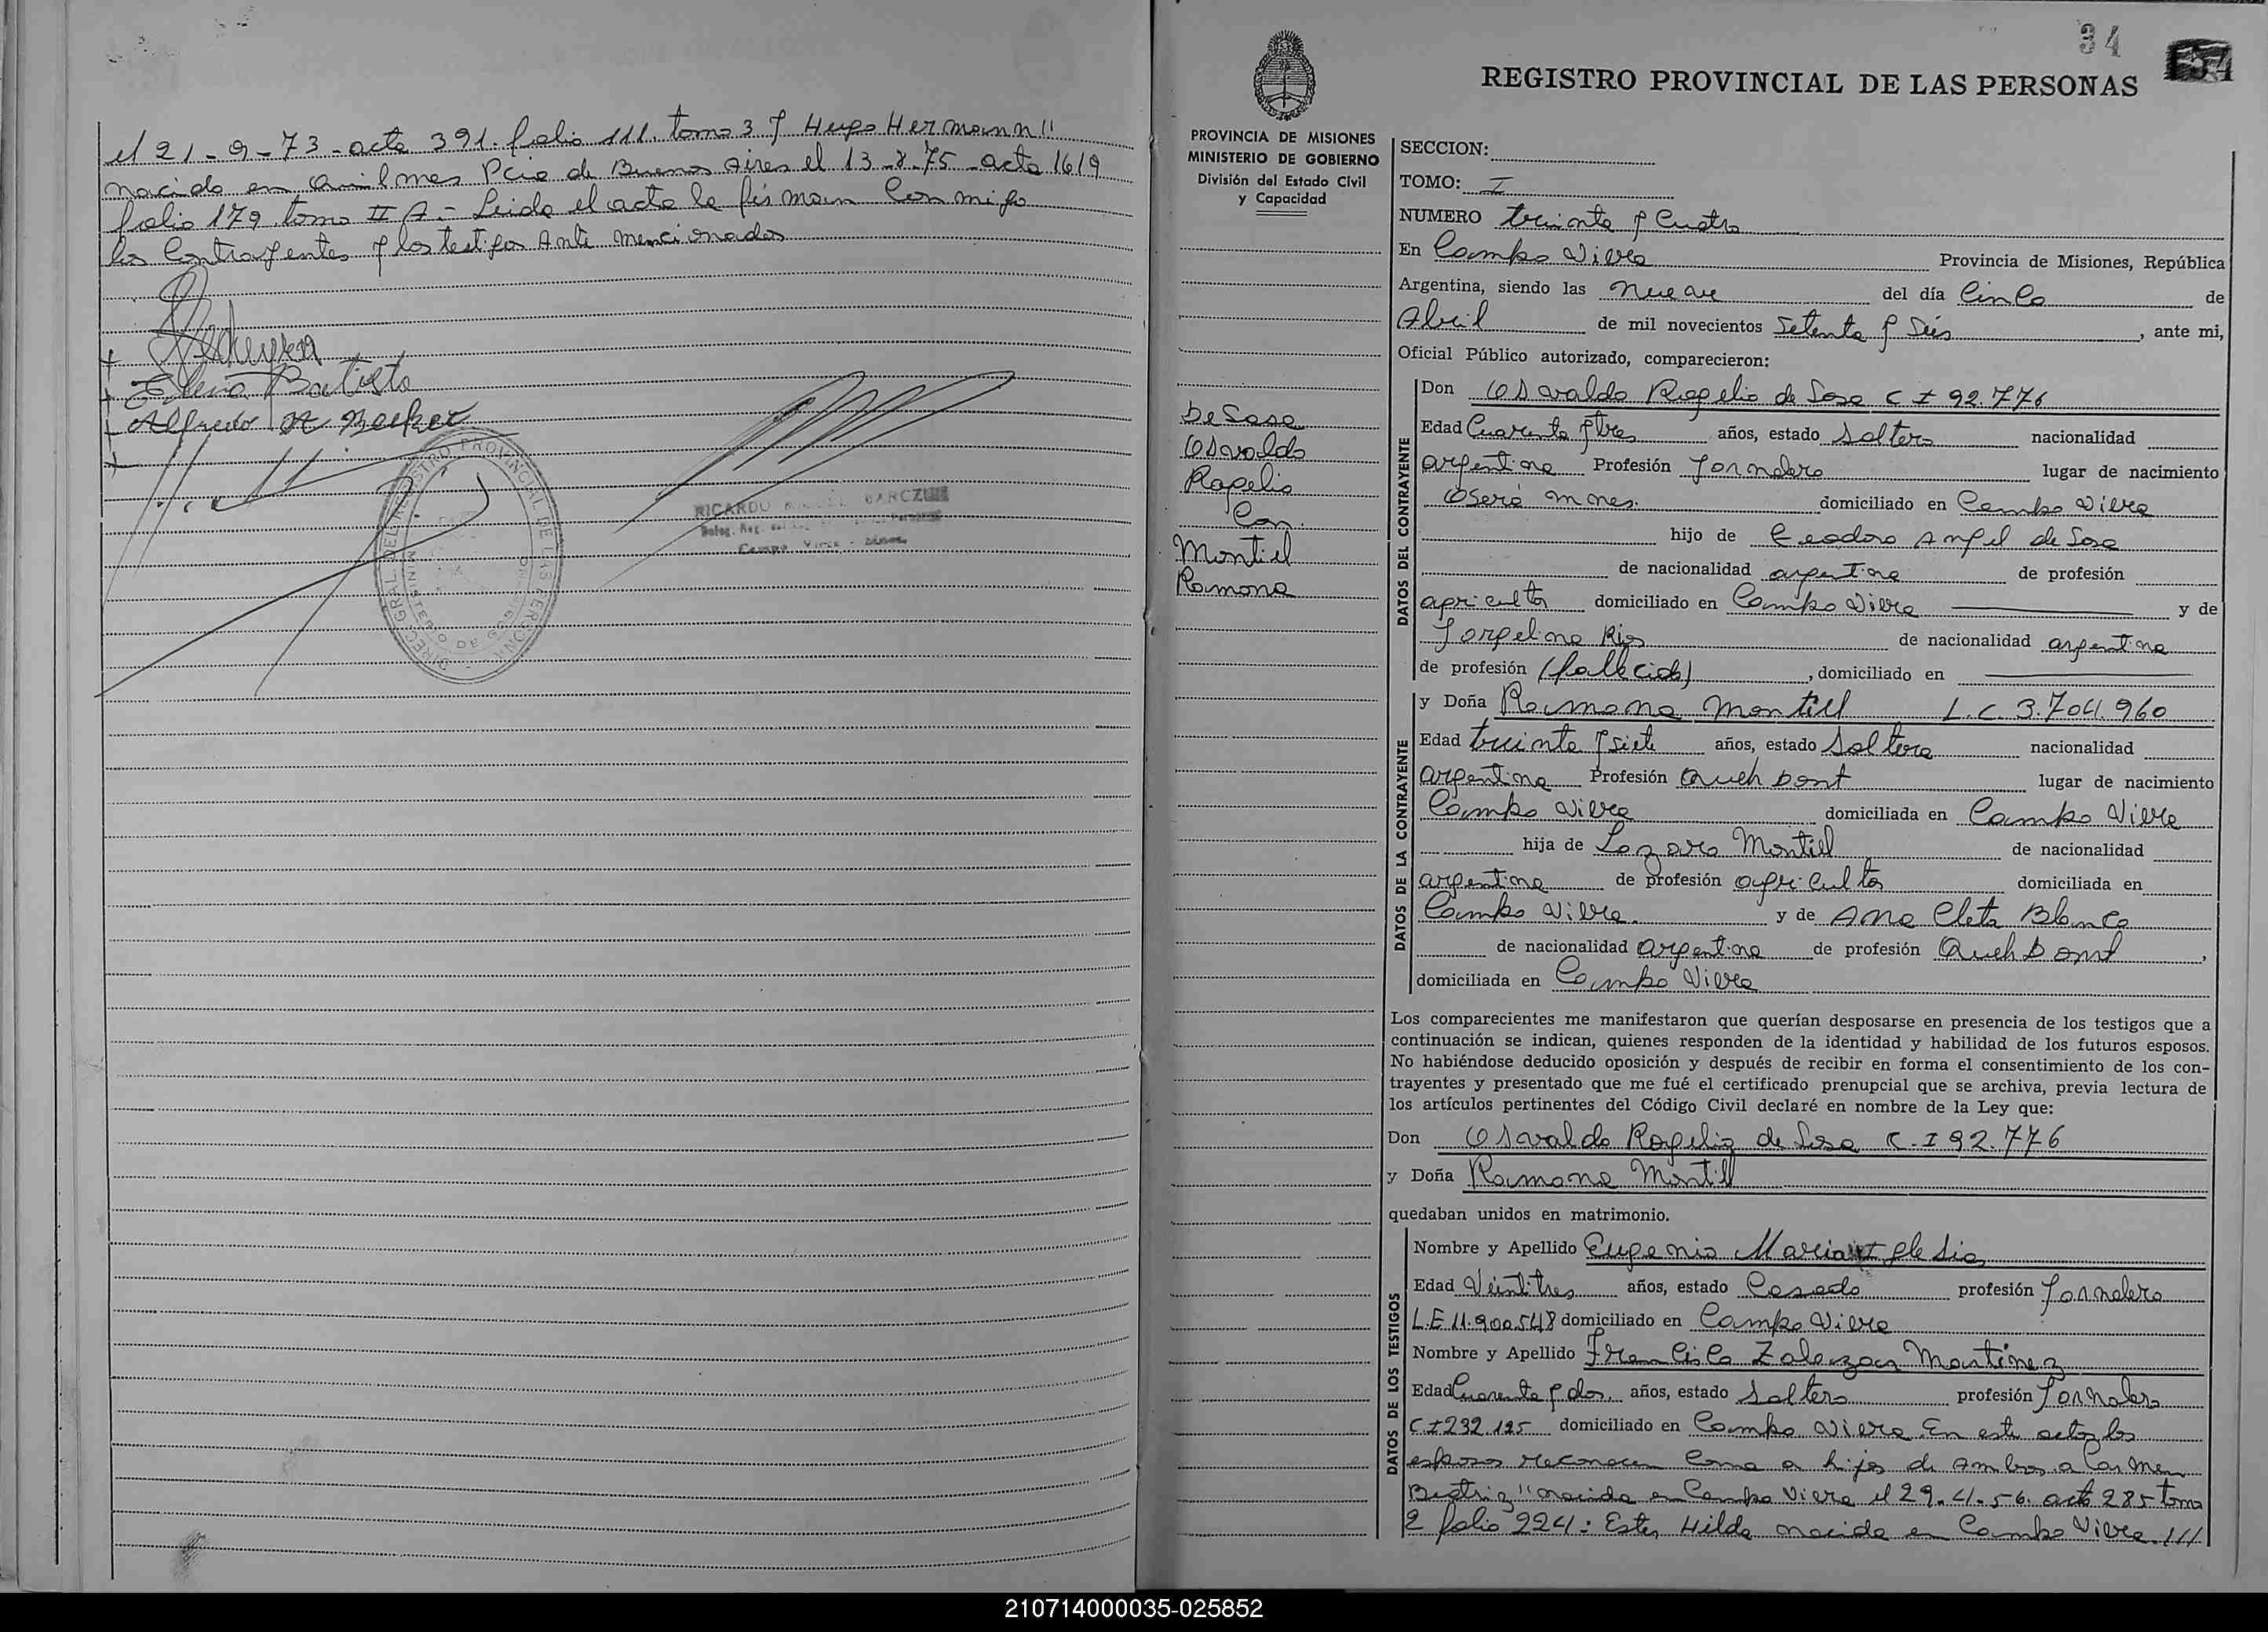 el 21-9-73-acta 391. folio 111. tomo 3 y Hugo Hermann"
nacido en Quilmes Pcia de Buenos Aires el 13-8-75-acta 1619
folio 179 tomo II A.- Leida el acta la firman Conmigo
los Contrayentes y los testigos Ante mencionados
Elena Batista
Alfredo
RICARDO
Campo Viera
34
REGISTRO PROVINCIAL DE LAS PERSONAS
PROVINCIA DE MISIONES
MINISTERIO DE GOBIERNO
División del Estado Civil
y Capacidad
De Sosa
Osvaldo
Rogelio
Con
Montiel
Ramona
SECCION:
TOMO: I
NUMERO treinta y Cuatro
En Campo Viera Provincia de Misiones, República
Argentina, siendo las nueve del día Cinco de
Abril de mil novecientos Setenta y Seis, ante mi,
Oficial Público autorizado, comparecieron:
DATOS DEL CONTRAYENTE
Don Osvaldo Rogelio de Sosa C I 92.776
Edad Cuarenta y tres años, estado Soltero nacionalidad
argentina Profesión Jornalero lugar de nacimiento
Oserá mnes. domiciliado en Campo Viera
hijo de Teodoro Angel de Sosa
de nacionalidad argentina de profesión
agricultor domiciliado en Campo Viera y de
Jorgelina Rios de nacionalidad argentina
de profesión (fallecida), domiciliado en
DATOS DE LA CONTRAYENTE
y Doña Ramona Montiel L.C. 3.704.960
Edad treinta y siete años, estado Soltera nacionalidad
argentina Profesión Queh Dont lugar de nacimiento
Campo Viera domiciliada en Campo Viera
hija de Lazaro Montiel de nacionalidad
argentina de profesión agricultor domiciliada en
Campo Viera. y de Ana Cleta Blanco
de nacionalidad argentina de profesión Queh Dont,
domiciliada en Campo Viera
Los comparecientes me manifestaron que querían desposarse en presencia de los testigos que a
continuación se indican, quienes responden de la identidad y habilidad de los futuros esposos.
No habiéndose deducido oposición y después de recibir en forma el consentimiento de los con-
trayentes y presentado que me fué el certificado prenupcial que se archiva, previa lectura de
los artículos pertinentes del Código Civil declaré en nombre de la Ley que:
Don Osvaldo Rogelio de Sosa C.I 92.776
y Doña Ramona Montiel
quedaban unidos en matrimonio.
DATOS DE LOS TESTIGOS
Nombre y Apellido Eugenio Maria Iglesia
Edad Veintitres años, estado Casado profesión Jornalero
L.E 11.900548 domiciliado en Campo Viera
Nombre y Apellido Francisco Zalazar Martinez
Edad Cuarenta y dos. años, estado Soltero profesión Jornalero
C.I 232.125 domiciliado en Campo Viera. En este acto los
esposos reconocen como a hijos de Ambos a Carmen
Beatriz" nacida en Campo Viera el 29.4.56. acta 285 tomo
2 folio 224: Ester Hilda nacida en Campo Viera.///
210714000035-025852